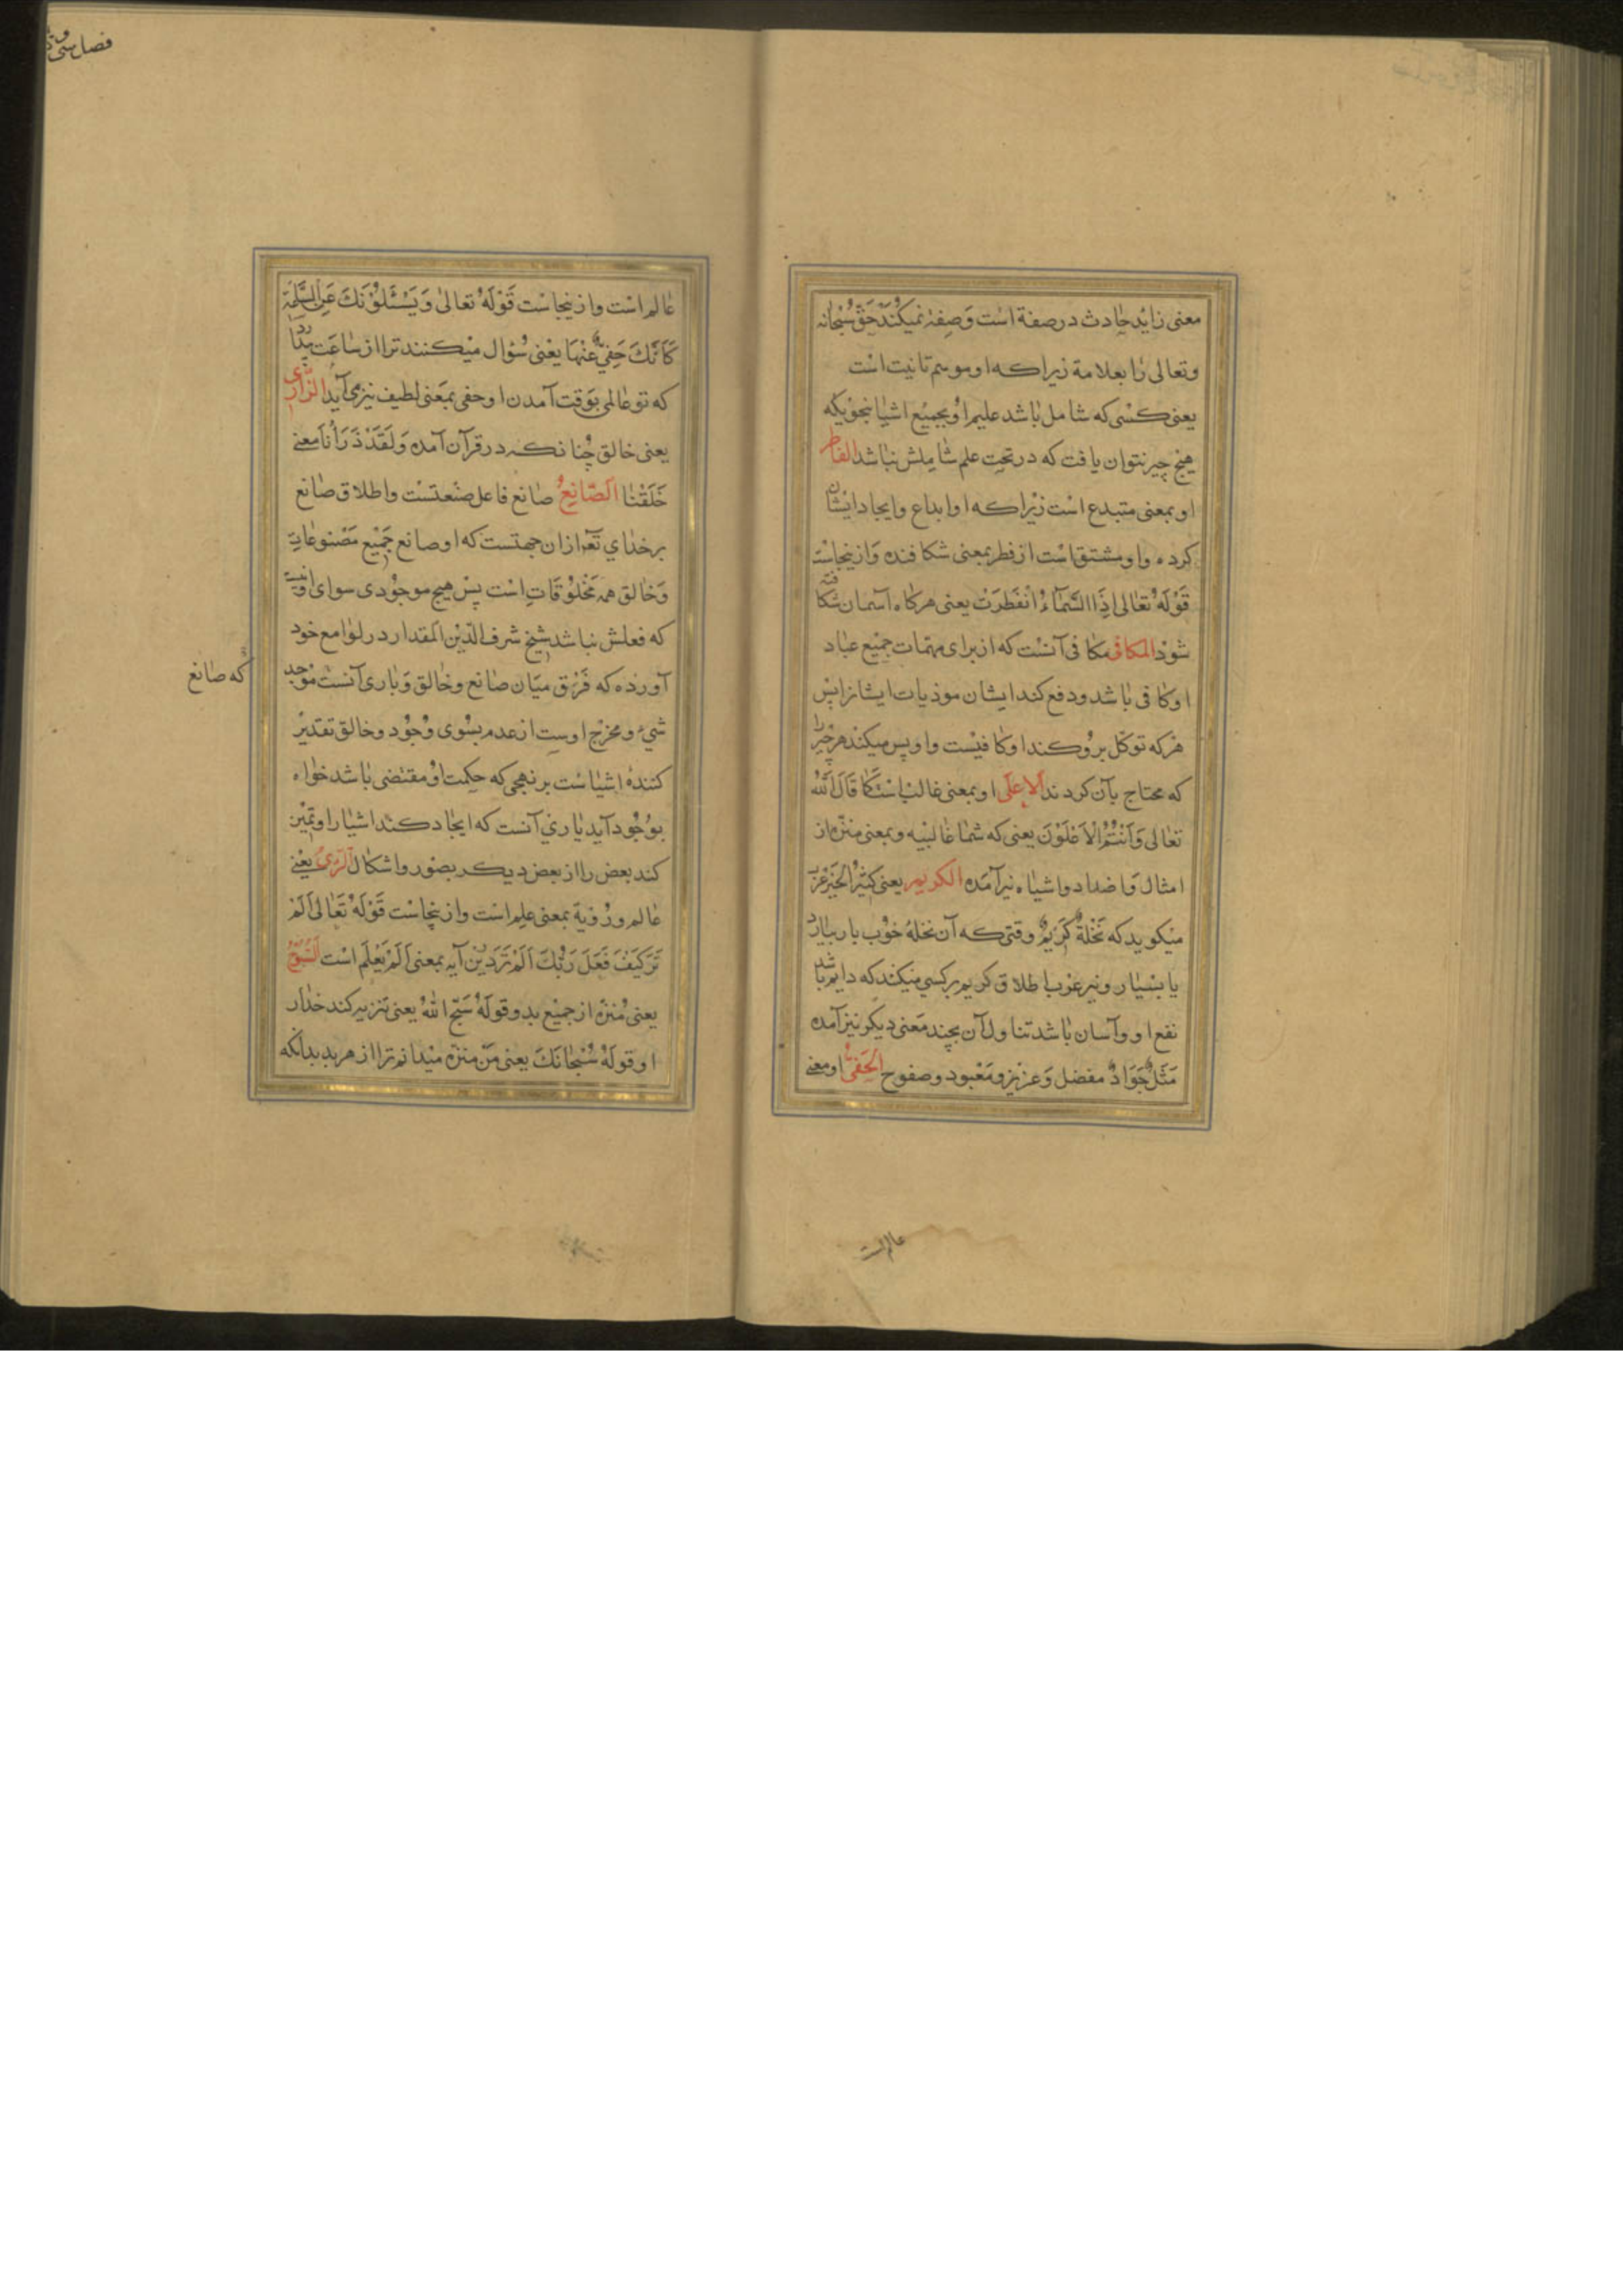 معنی زاید حادث در صفة است وَصِفه نمیکنند حَقّ سُبْحانه
وتعالی را بعلامة زیراکه او موسم تانیت است
یعنی کسی که شامل باشد علیم او بجمیع اشیا بنحویکه
هیچ چیز نتوان یافت که در تحت علم شاملش نباشد الفاطر
او بمعنی متبدع است زیراکه او ابداع وایجاد ایشان
کرده واو مشتق است از فطر بمعنی شکافنده وازینجاست
قَوْلَهُ تعالی اِذَا السَّمَآءُ انْفَطَرَتْ یعنی هرکاه آسمان شکافته
شود المکافی مکافی آنست که از برای مهمات جمیع عباد
او کافی باشد ودفع کند ایشان موذیات ایشانرا پس
هرکه توکل برو کند او کافیست واو پس میکند هر چیز را
که محتاج بآن کردند الاعلی او بمعنی غالب است کما قَالَ اللّٰهُ
تعالی وَاَنْتُمُ الْاَعْلَوْنَ یعنی که شما غالبیه وبمعنی منزه از
امثال وَاضداد واشیاه نیز آمَده الکریم یعنی کثیرُ الخَیر عَرَب
میکوید که نَخْلَةٌ کَرِیمٌ وقتی که آن نخلهٔ خوب بار بیارد
یا بسیار ونیز عرب اطلاق کریم بر کسی میکند که دایم باشد
نفع او وآسان باشد تناول آن بچند مَعنی دیکر نیز آمده
مَثَل جَوَادٌ مفضل وَعزیز ومَعْبود وصفوح الحَفیُّ او معنی
عالمست
فصل سی و
عالم است وازینجاست قَوْلَهُ تعالیٰ وَیَسْئَلُوْنَکَ عَنِ السَّاعَة
کَاَنَّکَ حَفِیٌّ عَنْهَا یعْنی سُؤال میکنند ترا از ساعَت بدا
که تو عالمی بوَقت آمدن او حفی بمَعنی لطیف نیز می آید الذّاری
یعنی خالق چنانکه در قرآن آمده وَلَقَدْ ذَرَأْنَا مَعنی
خَلَقْنٰا الصّانِعُ صانع فاعل صنعتست واطلاق صانع
برخدای تَعَٰ از ان جهتست که او صانع جَمیْع مَصْنوعاتِ
وَخالق همه مَخْلوُقاتِ است پس هیچ موجُودی سوای او نیست
که فعلش نباشد شیخ شرف الدّیْن المقداد در لوامع خود
آورده که فَرْق میَان صانع وخالق وَباری آنست که صانع مُوْجِد
شیء ومخرج اوست از عدم بسُوی وُجُود وخالق تقدیْر
کنندهٔ اشیاست بر نهجی که حِکمت او مقتضی باشد خواه
بوُجُود آید یا ری آنست که ایجاد کند اشیا را وتمیْز
کند بعض را از بعض دیکر بصُور واشکال الرَّئ یعْنی
عالم ورؤیة بمعنی علم است وازینجاست قَوْلَهُ تَعَالیٰ اَلَمْ
تَرَ کَیْفَ فَعَلَ رَبُّکَ اَلَمْ تَرَ دریْن آیه بمعنی اَلَمْ یَعْلَم است السُّبُّوْحُ
یعنی مُنَزه از جمیْع بد وقولَهُ سَبَّحَ اللهُ یعنی تنزیه کند خدارا
او قولَهُ سُبْحانَکَ یعنی مَنْ منزّه میدانم ترا از هر بد بدانکه